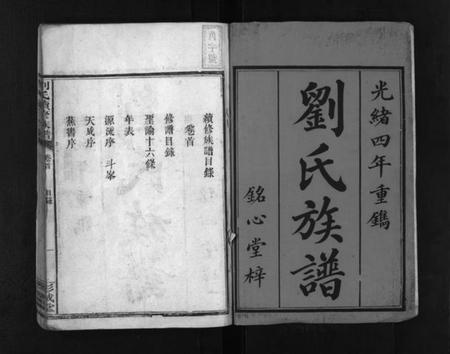 光緒四年重鐫
劉氏族譜
銘心堂梓
續修族譜目錄
卷首
修譜目錄
聖諭十六條
年表
源流序 斗峯
天成序
蕉書序
卷首
目錄
一